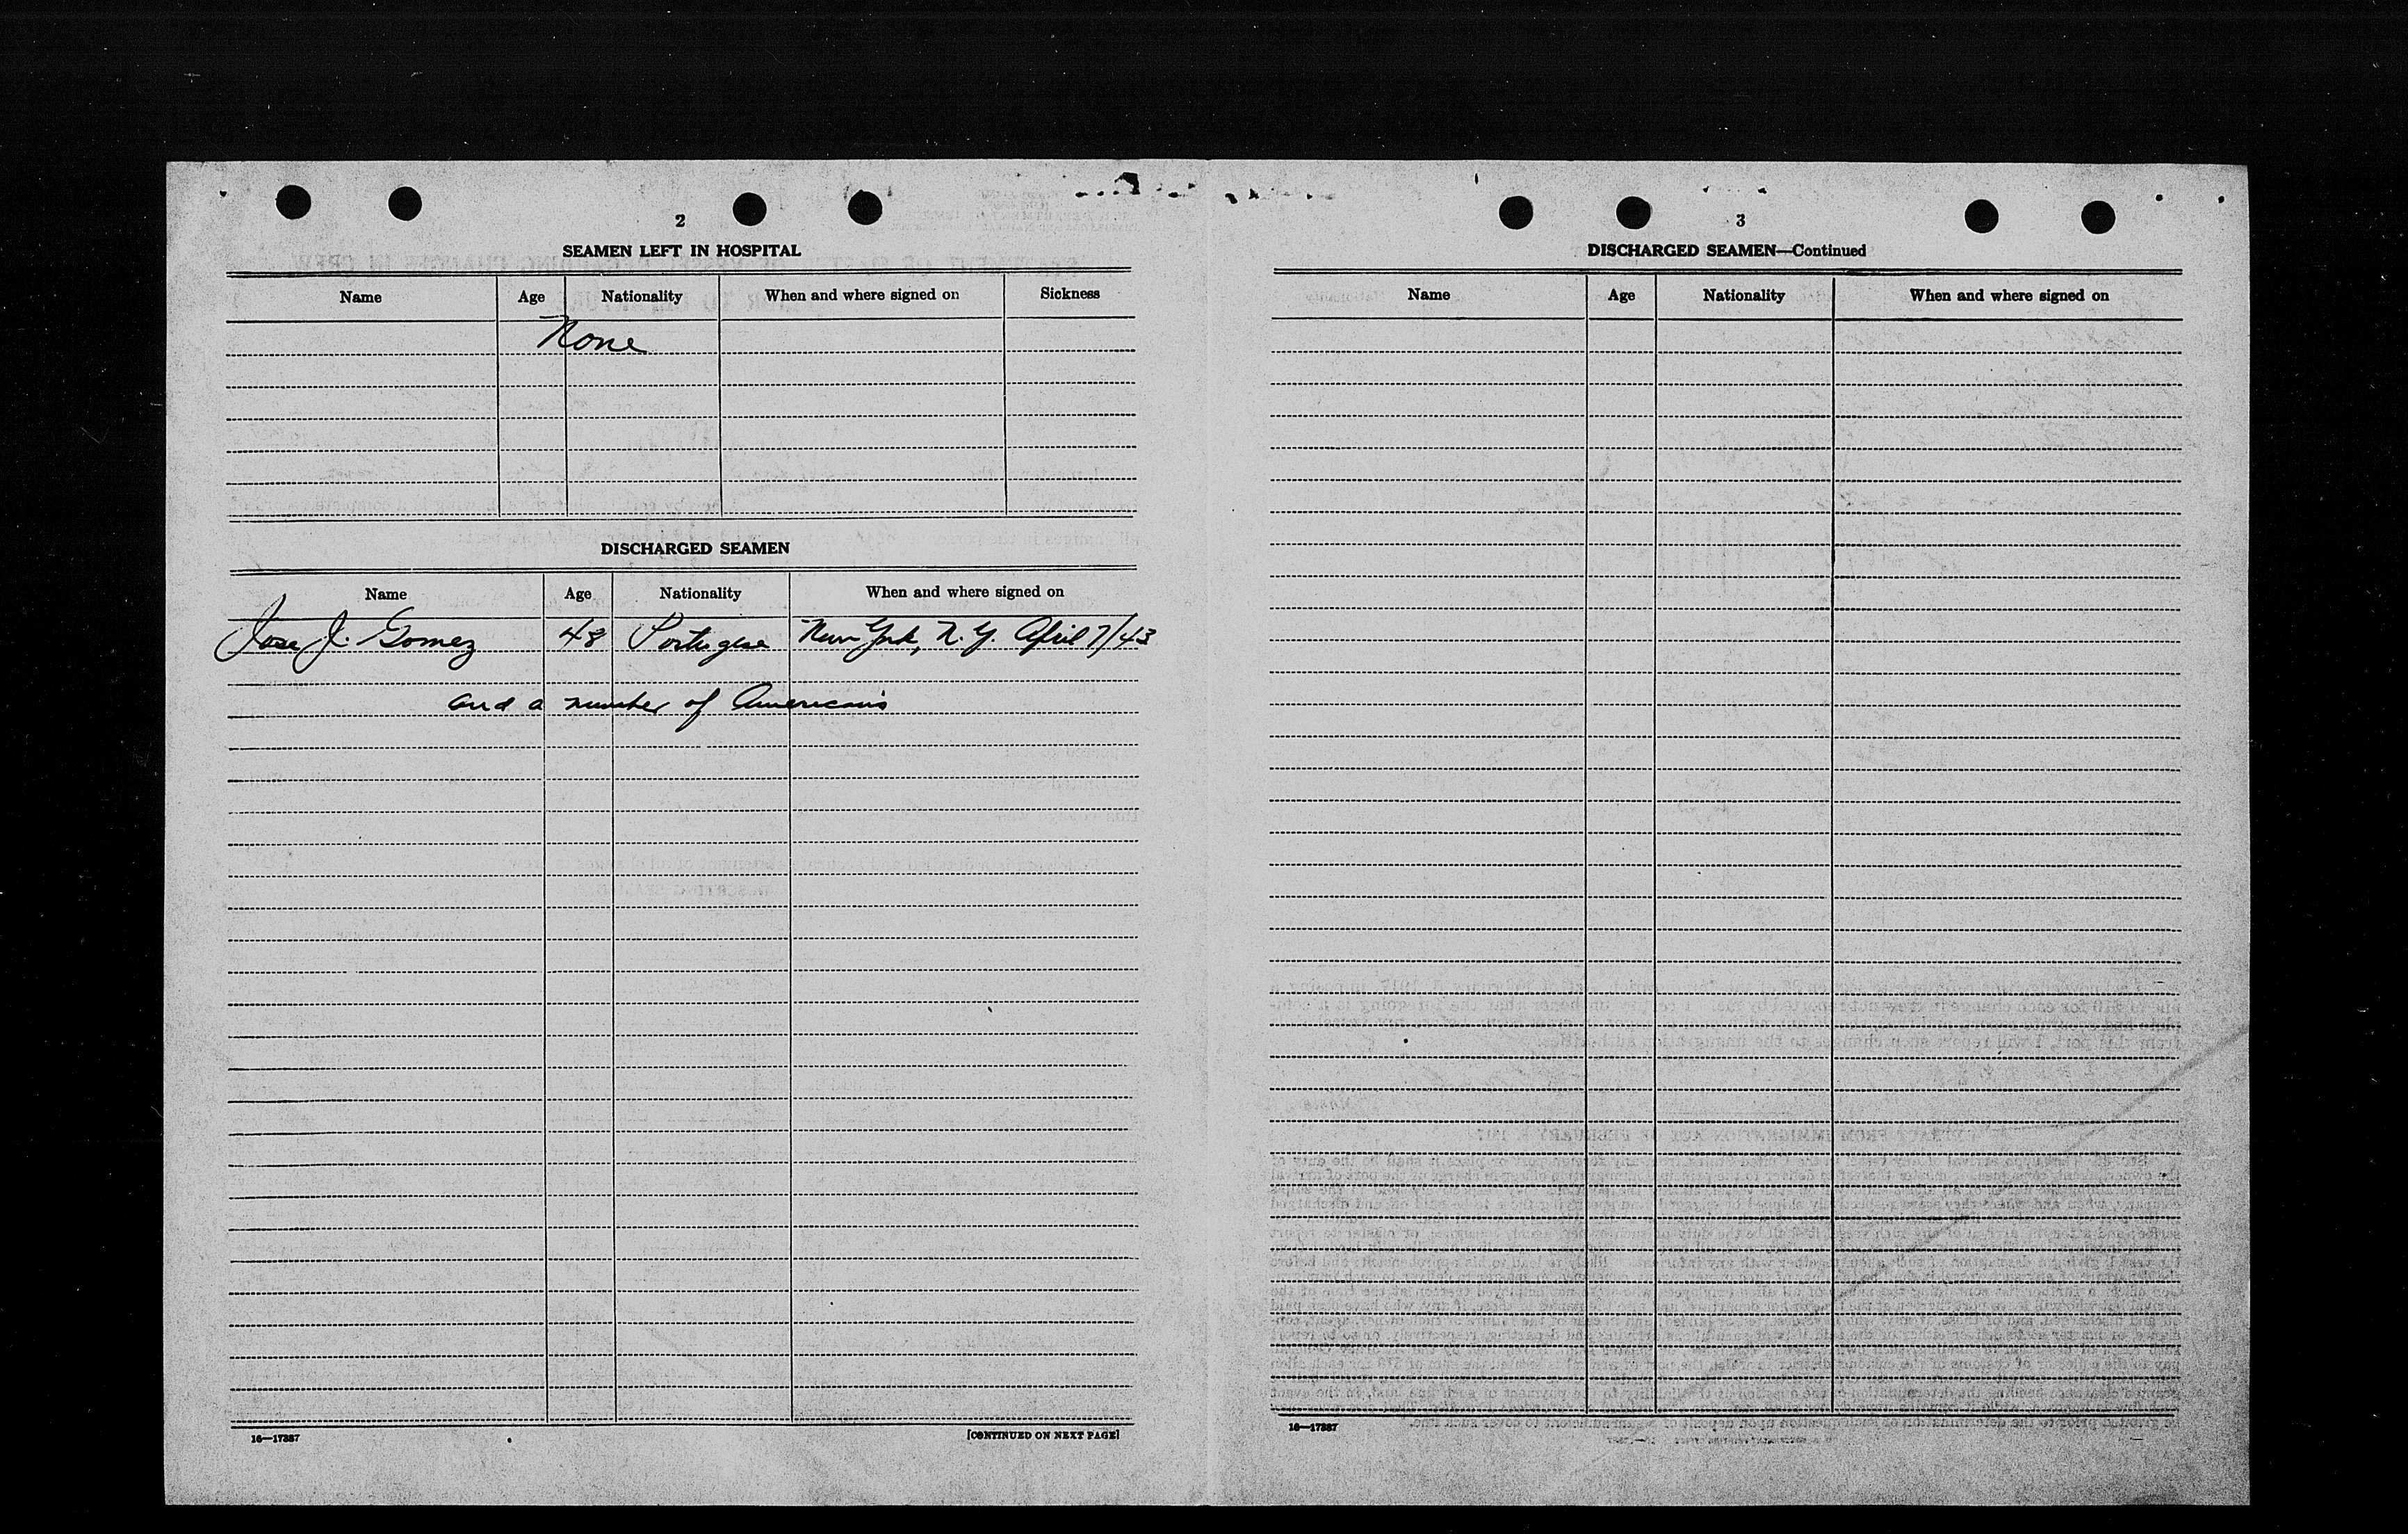 2
SEAMEN LEFT IN HOSPITAL
Name Age Nationality When and where signed on Sickness
None
DISCHARGED SEAMEN
Name Age Nationality When and where signed on
Jose J. Gomez 48 Portugese New York, N.Y. April 7/43
and a number of Americans
16—17387 [CONTINUED ON NEXT PAGE]
3
DISCHARGED SEAMEN—Continued
Name Age Nationality When and where signed on
16—17387